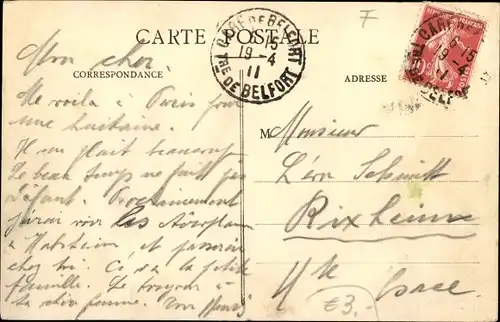 CARTE POSTALE
CORRESPONDANCE
ADRESSE
GARE DE BELFORT
15
19-4
11
TRE DE BELFORT
F
Mon cher,
Me voilà à Paris pour
une huitaine.
Il me plait beaucoup
Le beau temps ne fait pas
défaut. Prochainement
j'irai voir les Aéroplanes
à Habsheim et passerai
chez toi. Ci va la petite
famille. Le bonjour à
ta chère femme. Ton Henri
M
Monsieur
Léon Schmitt
Rixheim
Hte Alsace
€3,-